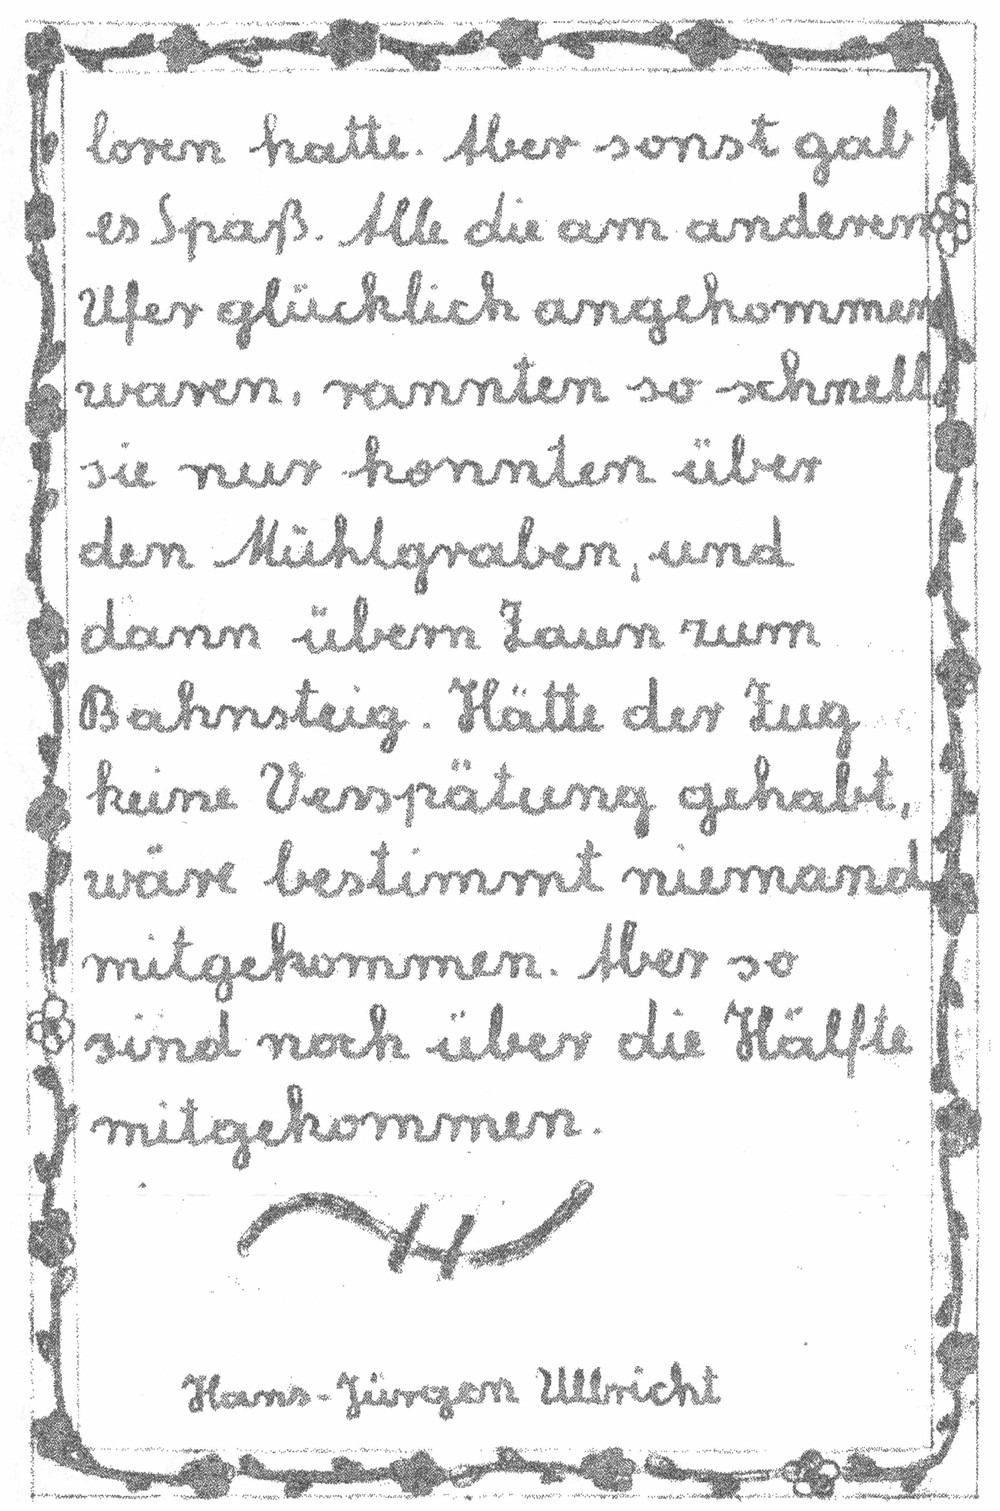 loren hatte. Aber sonst gab
es Spaß. Alle die am anderen
Ufer glücklich angekommen
waren, rannten so schnell,
sie nur konnten über
den Mühlgraben, und
dann übern Zaun zum
Bahnsteig. Hätte der Zug
keine Verspätung gehabt,
wäre bestimmt niemand
mitgekommen. Aber so
sind noch über die Hälfte
mitgekommen.
Hans-Jürgen Ullricht